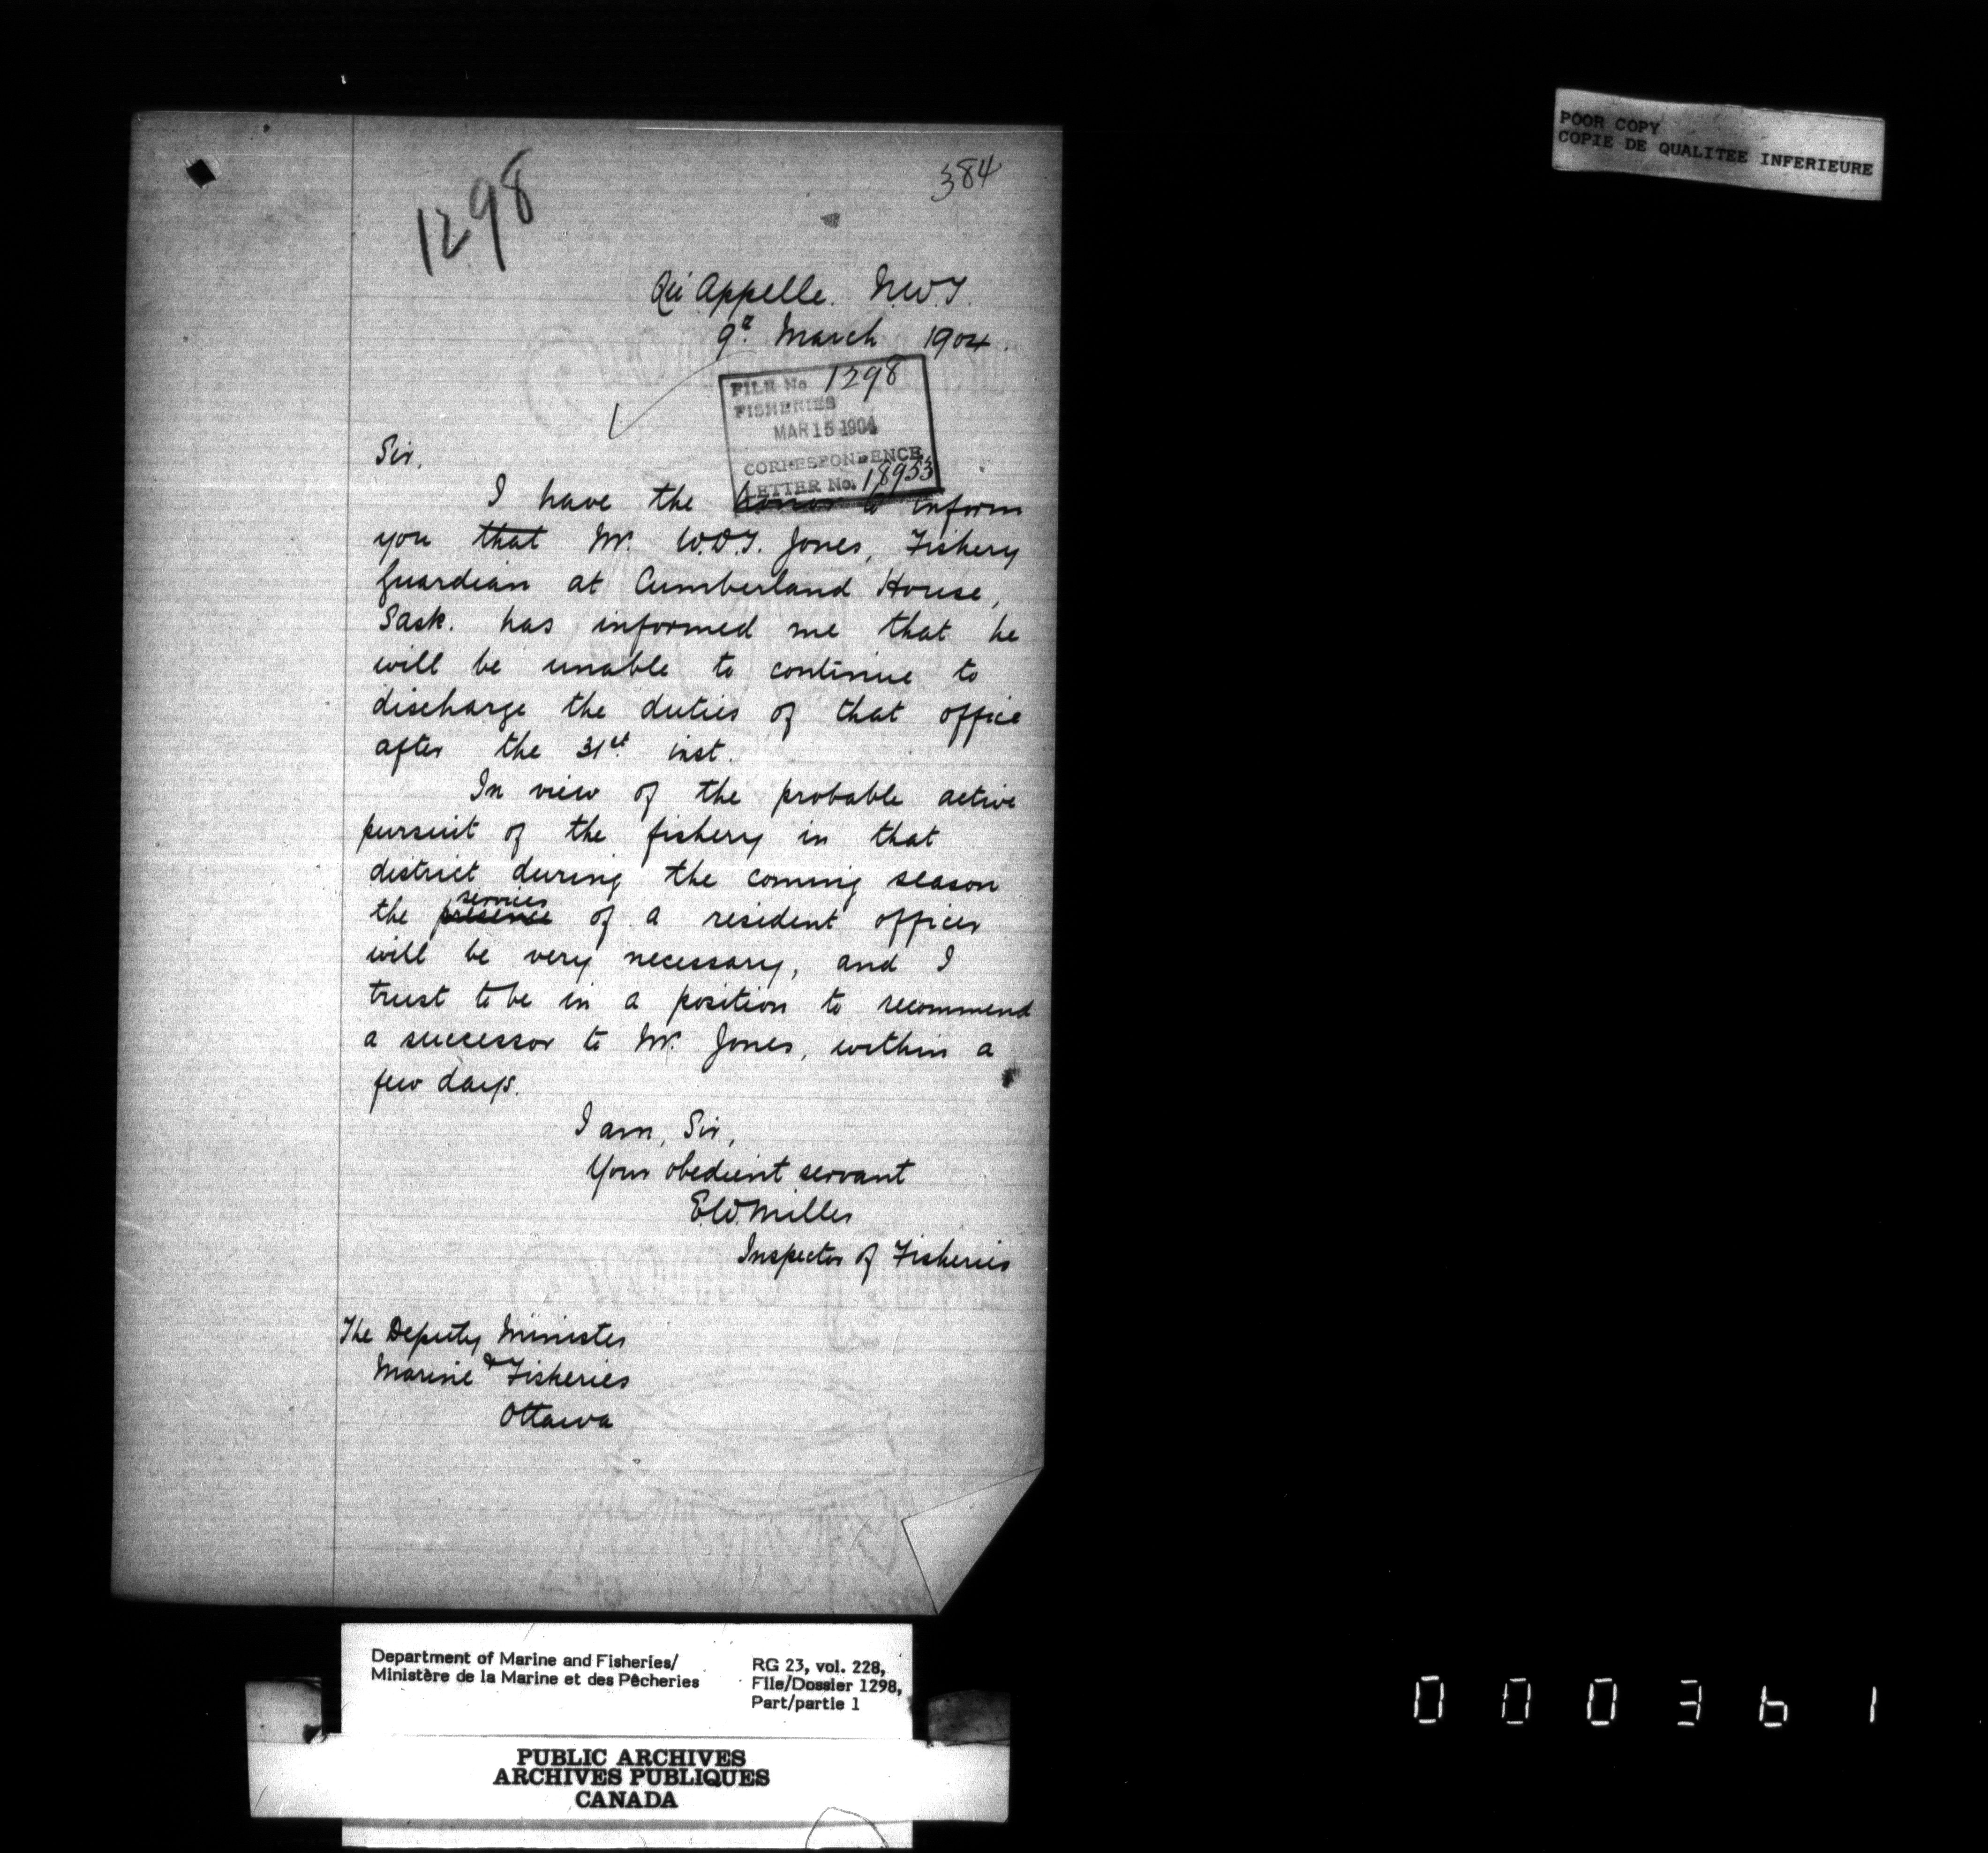 POOR COPY
COPIE DE QUALITEE INFERIEURE
384
1298
Qu'Appelle. N.W.T.
9th March 1904.
FILE No 1298
FISHERIES
MAR 15 1904
CORRESPONDENCE
LETTER No. 18953
Sir,
I have the honor to inform
you that Mr. W.D.J. Jones, Fishery
Guardian at Cumberland House,
Sask. has informed me that he
will be unable to continue to
discharge the duties of that office
after the 31st inst.
In view of the probable active
pursuit of the fishery in that
district during the coming season
services
the presence of a resident officer
will be very necessary, and I
trust to be in a position to recommend
a successor to Mr. Jones, within a
few days.
I am, Sir,
Your obedient servant
E.W. Miller
Inspector of Fisheries
The Deputy Minister
Marine & Fisheries
Ottawa
Department of Marine and Fisheries/
Ministère de la Marine et des Pêcheries
RG 23, vol. 228,
File/Dossier 1298,
Part/partie 1
PUBLIC ARCHIVES
ARCHIVES PUBLIQUES
CANADA
000361